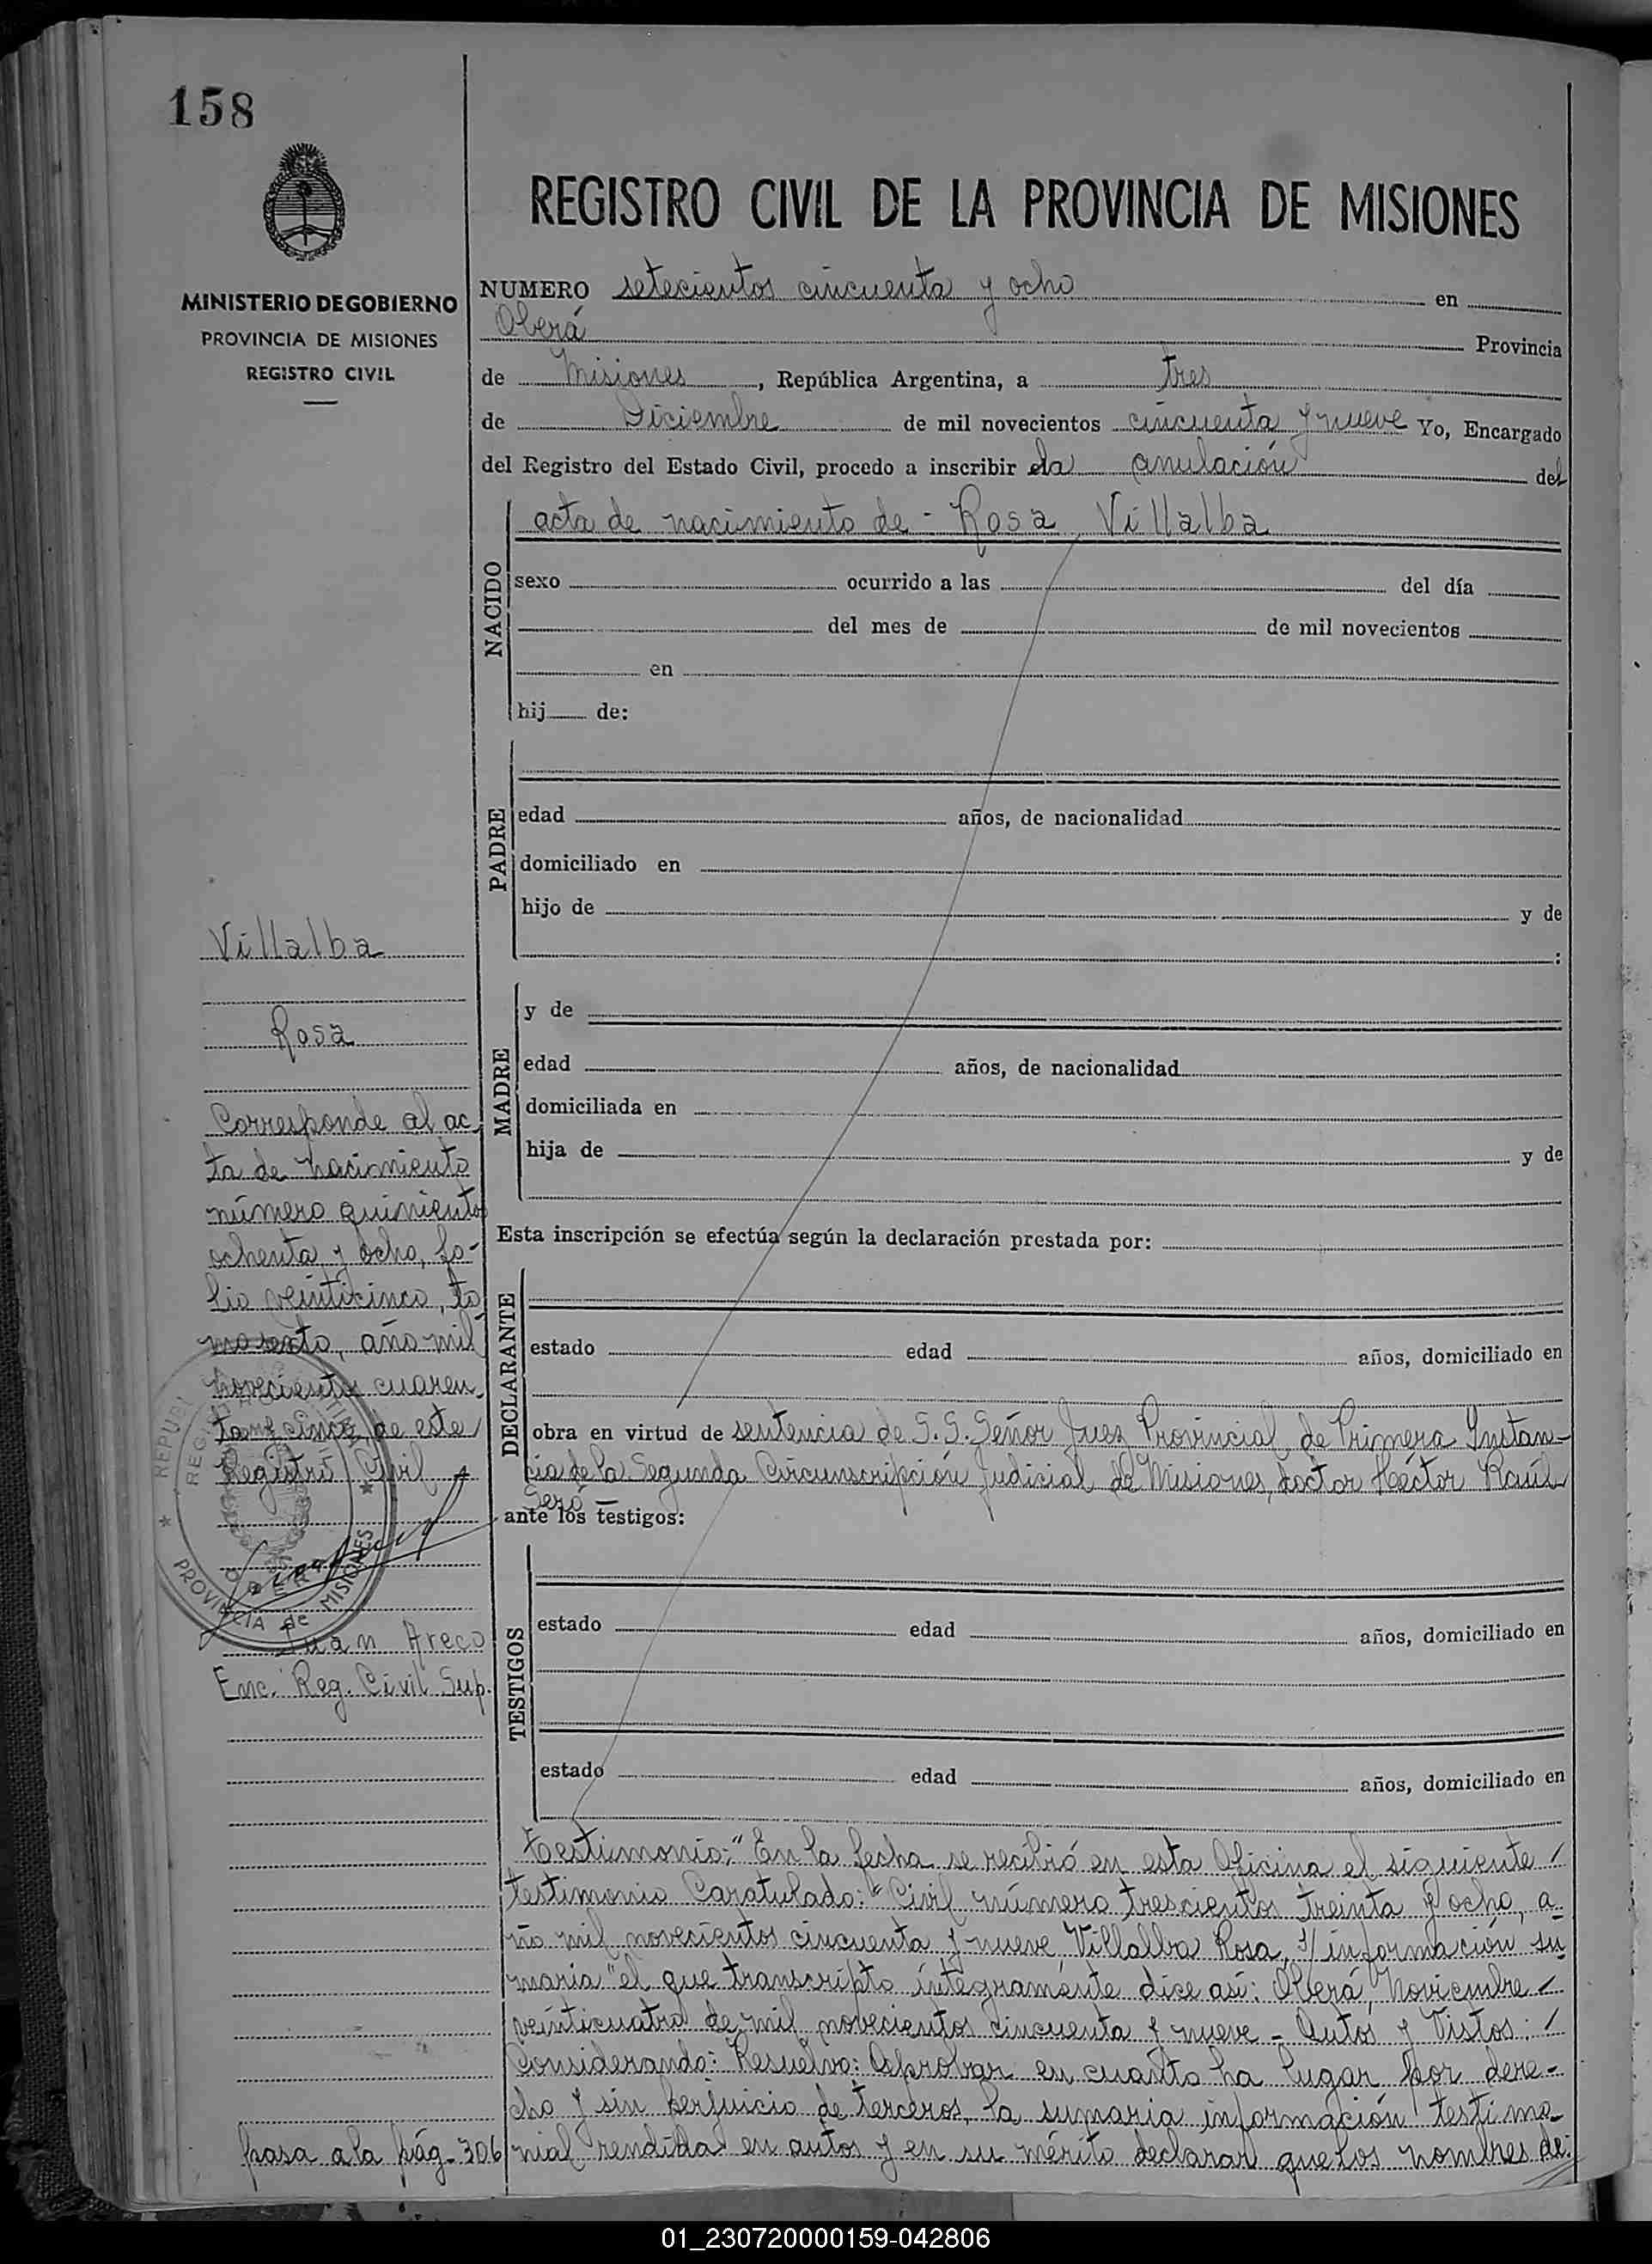 158
REGISTRO CIVIL DE LA PROVINCIA DE MISIONES
MINISTERIO DE GOBIERNO
PROVINCIA DE MISIONES
REGISTRO CIVIL
NUMERO setecientos cincuenta y ocho en
Oberá Provincia
de Misiones, República Argentina, a tres
de Diciembre de mil novecientos cincuenta y nueve Yo, Encargado
del Registro del Estado Civil, procedo a inscribir la anulación del
NACIDO
acta de nacimiento de - Rosa Villalba
sexo ocurrido a las del día
del mes de de mil novecientos
en
hij de:
PADRE
edad años, de nacionalidad
domiciliado en
hijo de y de
:
MADRE
y de
edad años, de nacionalidad
domiciliada en
hija de y de
Esta inscripción se efectúa según la declaración prestada por:
DECLARANTE
estado edad años, domiciliado en
obra en virtud de sentencia de S.S. Señor Juez Provincial de Primera Instan-
cia de la Segunda Circunscripción Judicial de Misiones, doctor Héctor Raúl
ante los testigos:
TESTIGOS
estado edad años, domiciliado en
estado edad años, domiciliado en
Testimonio: "En la fecha se recibió en esta Oficina el siguiente /
testimonio Caratulado: "Civil número trescientos treinta y ocho, a-
ño mil novecientos cincuenta y nueve Villalba Rosa, s/ información su
maria" el que transcripto íntegramente dice así: Oberá, Noviembre /
veinticuatro de mil novecientos cincuenta y nueve - Autos y Vistos: /
Considerando: Resuelvo: Aprobar en cuanto ha lugar por dere-
cho y sin perjuicio de terceros, la sumaria información testimo-
nial rendida en autos y en su mérito declarar que los nombres de:
Villalba
Rosa
Corresponde al ac
ta de nacimiento
número quinientos
ochenta y ocho, fo-
lio veinticinco, to
mo sexto, año mil
novecientos cuaren
ta y cinco de este
Registro Civil
PROVINCIA de MISIONES
Juan Areco
Enc. Reg. Civil Sup.
pasa a la pág. 306
01_230720000159-042806